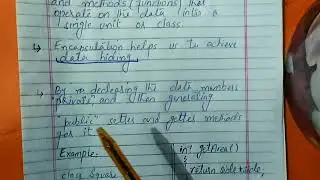 and methods (functions) that
operate on the data (into a
single unit or class.
↳ Encapsulation helps us to achieve
data hiding
↳ By declaring the data members
"private" and then generating
"public" setter and getter methods
for it.
Example:
int getArea()
{ return side*side;
class Square